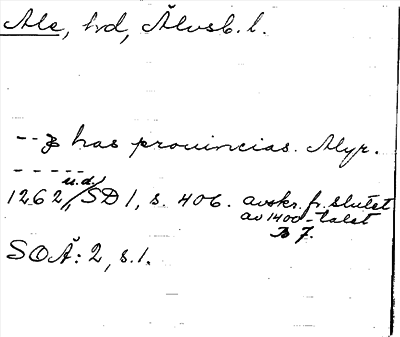 Ale, hd, Älvsb. l.
-- has prouincias. Alyr.
-----
1262 u.d., SD 1, s. 406. avskr. fr. slutet
av 1400-talet
B 7.
SOÄ: 2, s. 1.